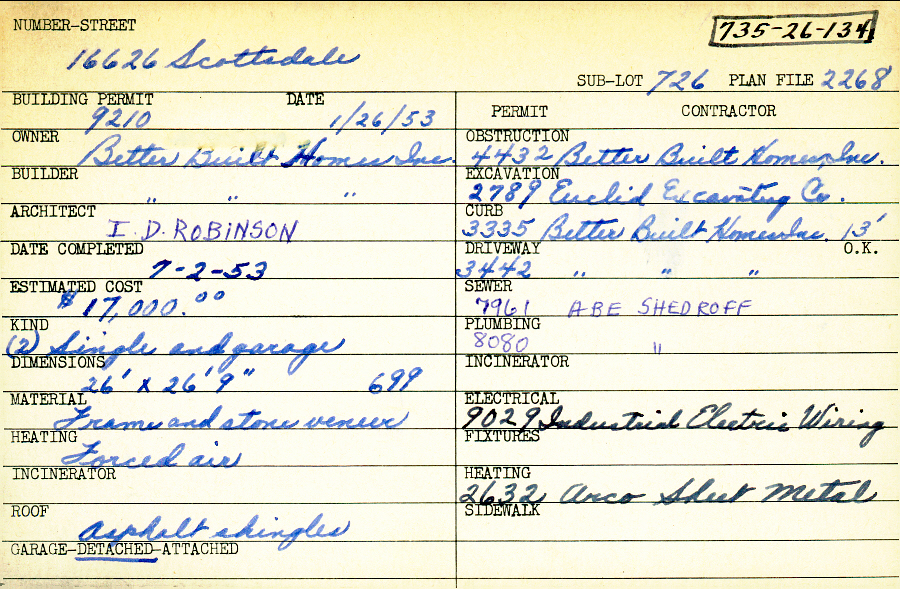 NUMBER-STREET
735-26-134
16626 Scottsdale
SUB-LOT 726 PLAN FILE 2268
BUILDING PERMIT DATE
9210 1/26/53
OWNER
Better Built Homes Inc.
BUILDER
" " "
ARCHITECT
I. D. ROBINSON
DATE COMPLETED
7-2-53
ESTIMATED COST
$17,000.00
KIND
(2) Single and garage
DIMENSIONS
26' x 26' 9" 699
MATERIAL
Frame and stone veneer
HEATING
Forced air
INCINERATOR
ROOF
Asphalt shingles
GARAGE-DETACHED-ATTACHED
PERMIT CONTRACTOR
OBSTRUCTION
4432 Better Built Homes, Inc.
EXCAVATION
2789 Euclid Excavating Co.
CURB
3335 Better Built Homes Inc. 13'
DRIVEWAY O.K.
3442 " " "
SEWER
7961 ABE SHEDROFF
PLUMBING
8080 "
INCINERATOR
ELECTRICAL
9029 Industrial Electric Wiring
FIXTURES
HEATING
2632 Arco Sheet Metal
SIDEWALK